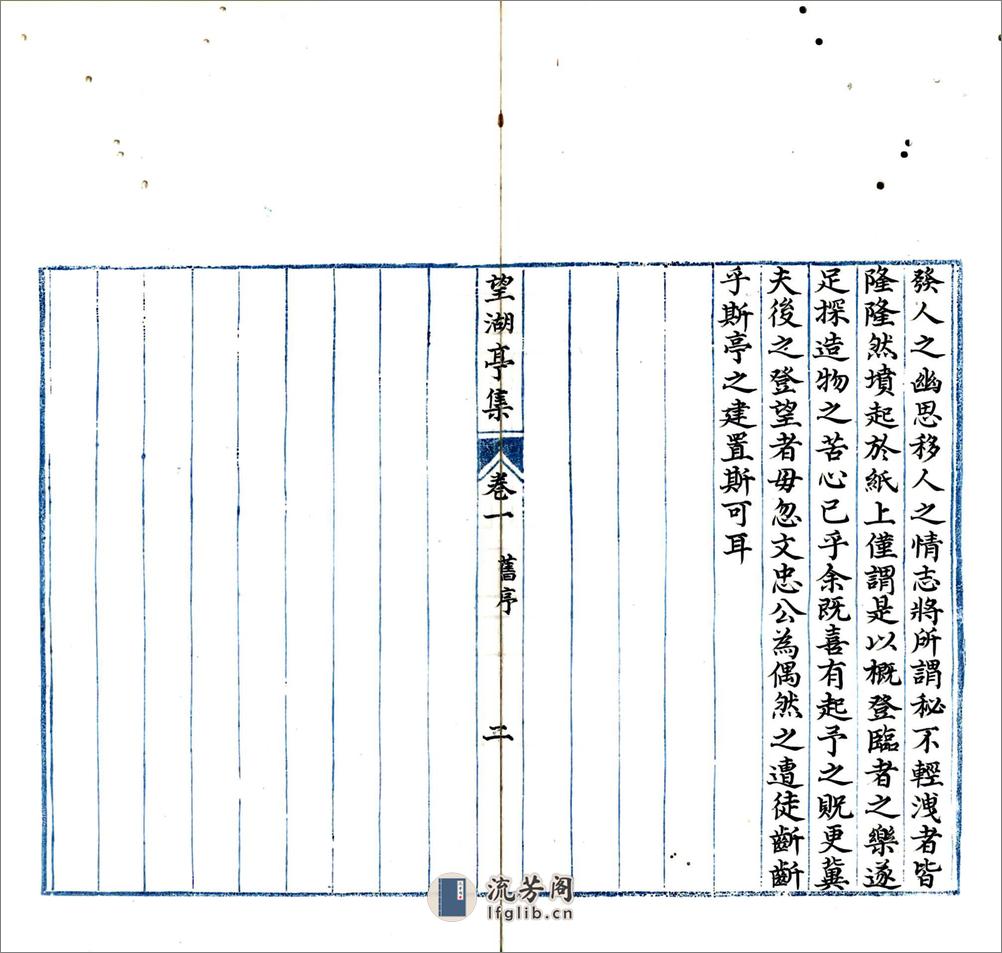 發人之幽思移人之情志將所謂秘不輕洩者皆
隆隆然墳起於紙上僅謂是以概登臨者之樂遂
足探造物之苦心已乎余既喜有起予之貺更冀
夫後之登望者毋忽文忠公為偶然之遭徒齗齗
乎斯亭之建置斯可耳
望湖亭集
卷一
舊序
三
流芳阁
lfglib.cn